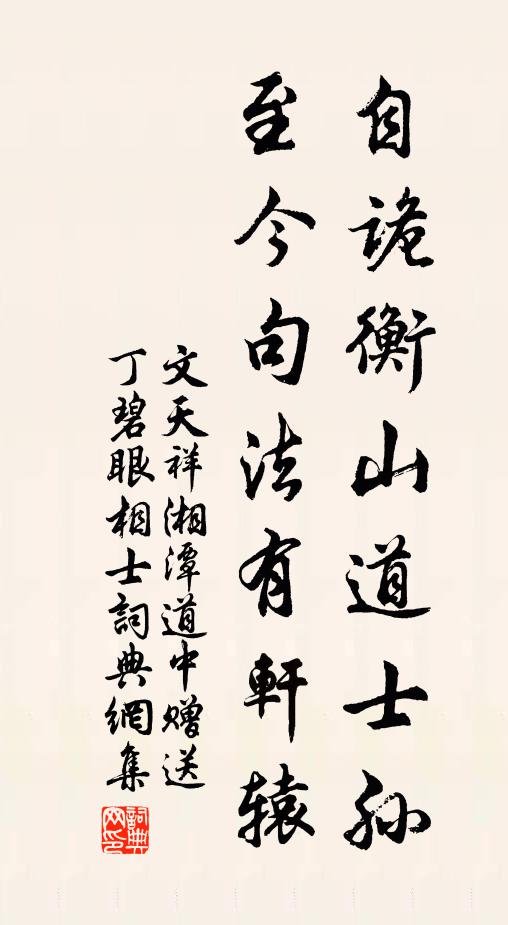 自詭衡山道士孙
至今句法有軒辕
文天祥湘潭道中赠送
丁碧眼相士詞典網集
詞典網印